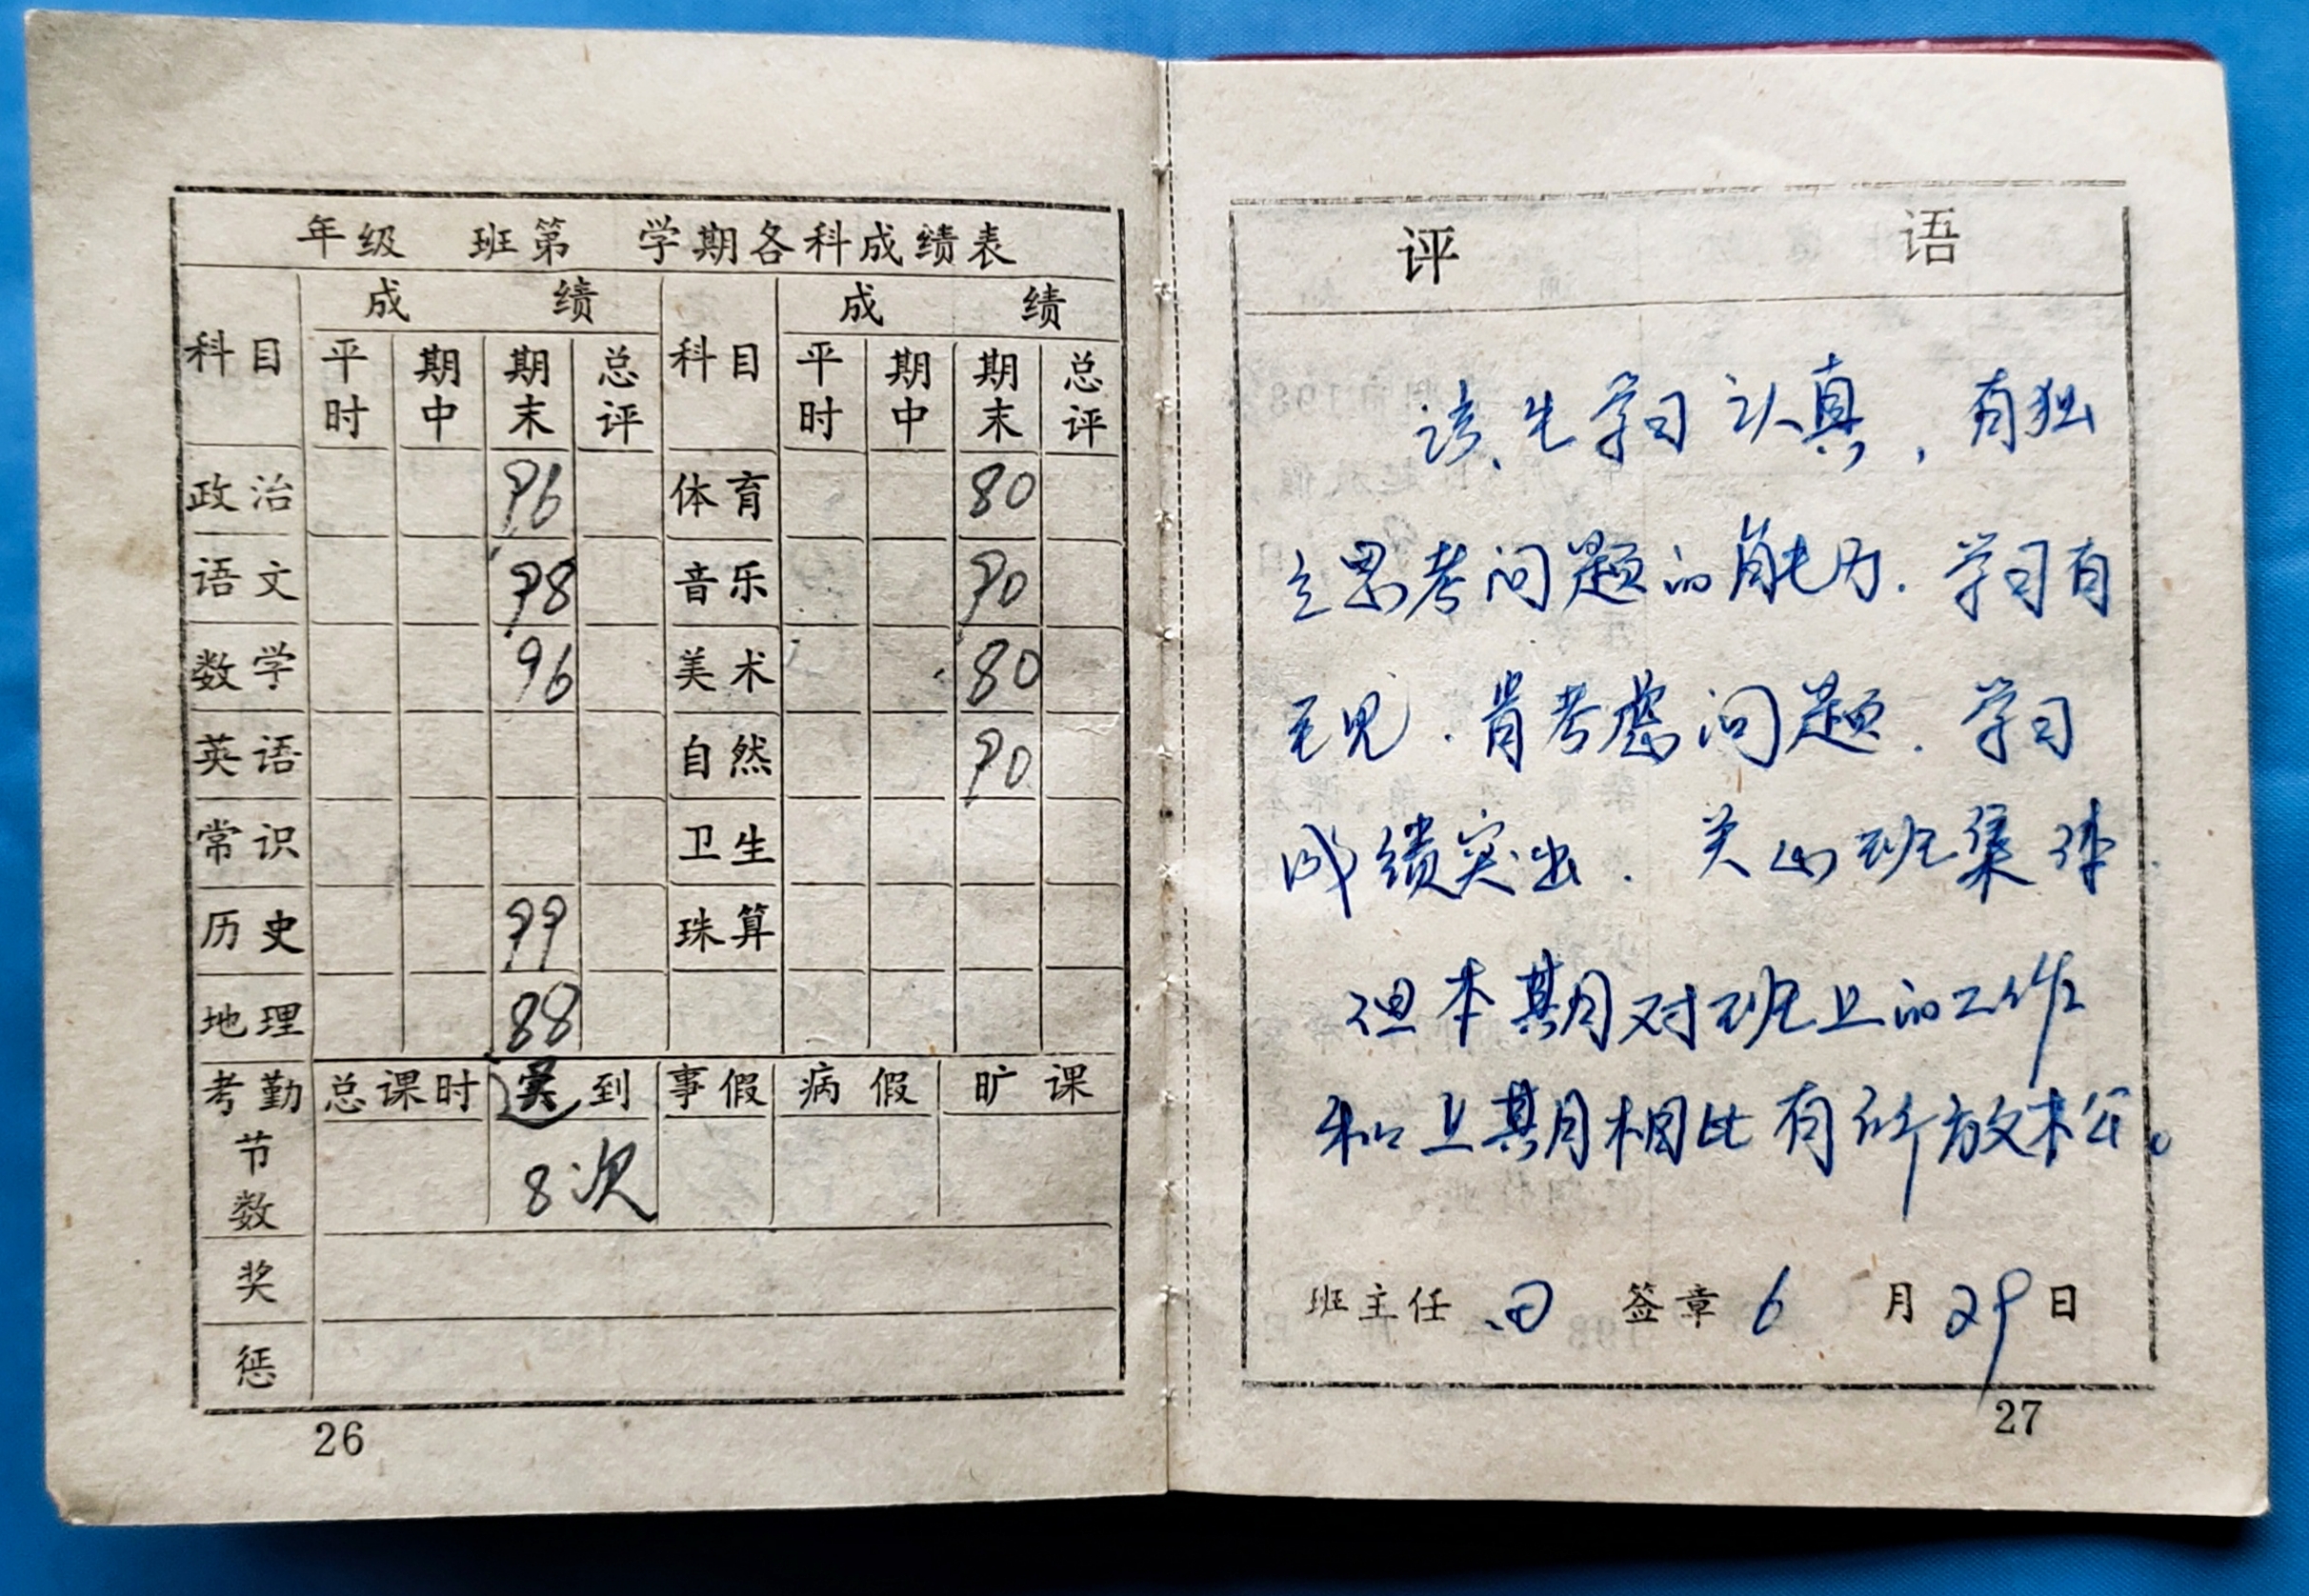 年级 班第 学期各科成绩表
科目 成绩 科目 成绩
平时 期中 期末 总评 平时 期中 期末 总评
政治 96 体育 80
语文 98 音乐 90
数学 96 美术 80
英语 自然 90
常识 卫生
历史 99 珠算
地理 88
考勤节数 总课时 实到 事假 病假 旷课
8次
奖
惩
26
评语
该生学习认真，有独
立思考问题的能力．学习有
主见．肯考虑问题．学习
成绩突出．关心班集体．
但本期对班上的工作
和上期相比有所放松。
班主任 签章 6 月 29 日
27